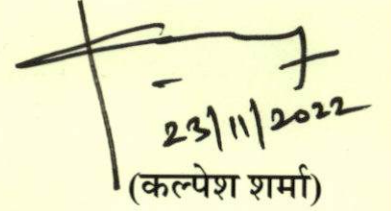 23/11/2022
(कल्पेश शर्मा)